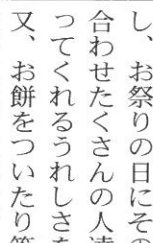 し、お祭りの日にその
合わせたくさんの人達
ってくれるうれしさを
又、お餅をついたり